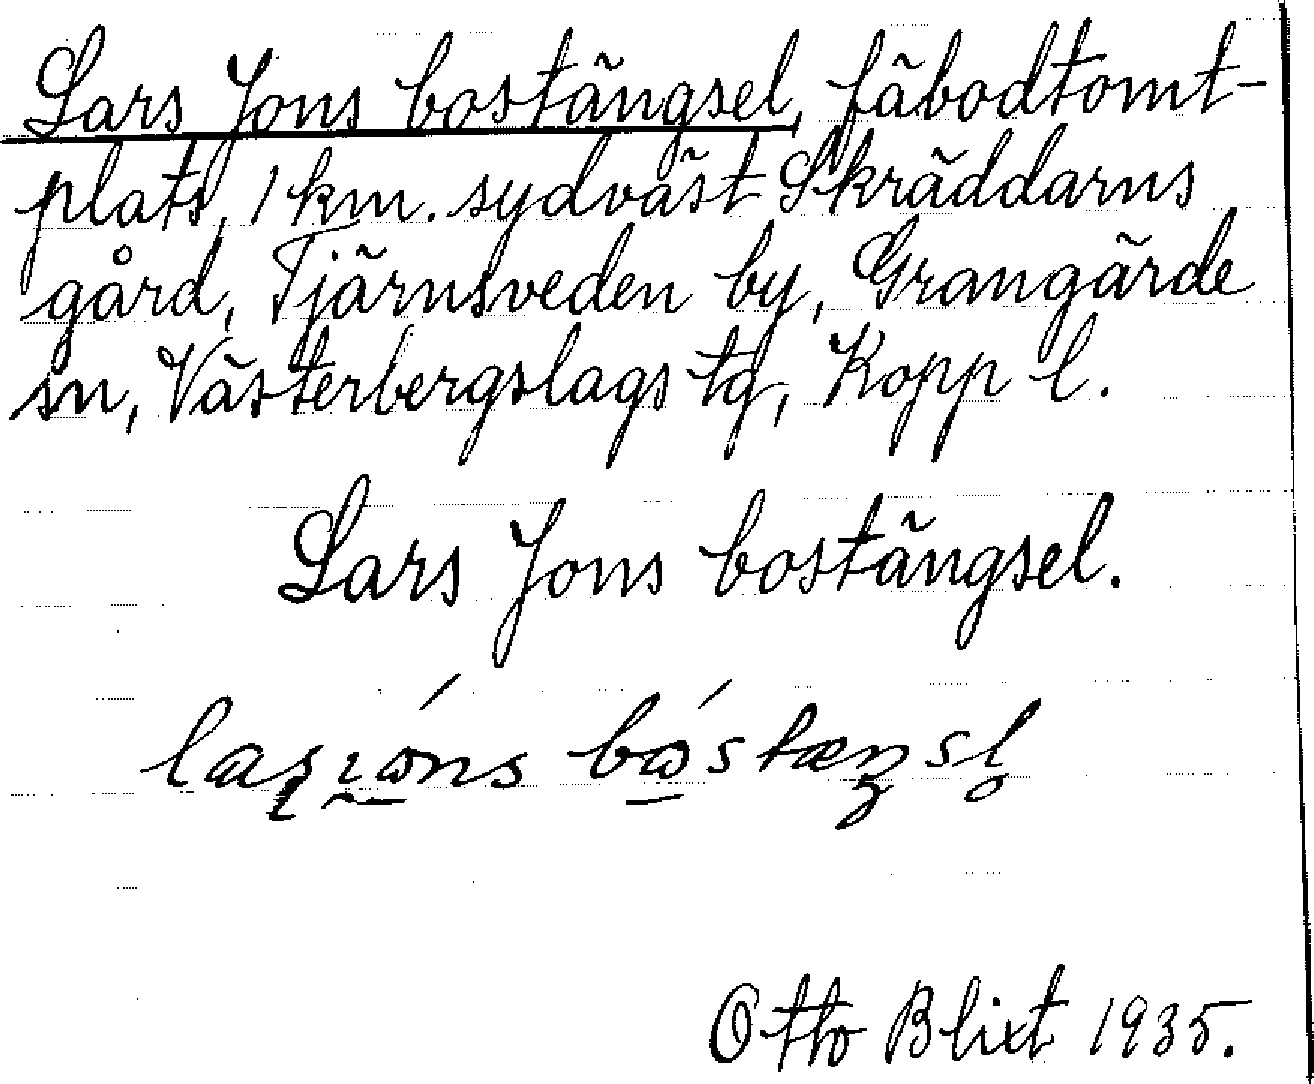 Lars Jons bostängsel, fäbodtomt-
plats, 1 km. sydväst Skräddarns
gård, Tjärnsveden by, Grangärde
sn, Västerbergslags tg, Kopp l.
Lars Jons bostängsel.
Otto Blixt 1935.